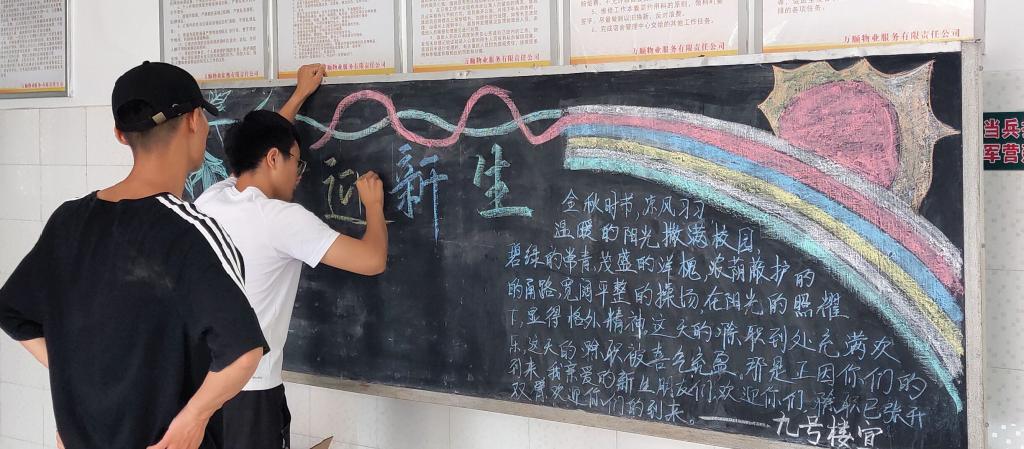 万顺物业服务有限责任公司
万顺物业服务有限责任公司
万顺物业服务有限责任公司
万顺物业服务有限责任公司
万顺物业服务有限责任公司
迎新生
金秋时节,凉风习习
温暖的阳光撒满校园
碧绿的常青,茂盛的洋槐,浓荫蔽护的
的甬路,宽阔平整的操场,在阳光的照耀
下,显得格外精神,这天的滁职到处充满欢
乐,这天的滁职做喜气充盈,那是正因你们的
到来,我亲爱的新生朋友们,欢迎你们,滁职已张开
双臂欢迎你们的到来。
九号楼宣
当兵
军营